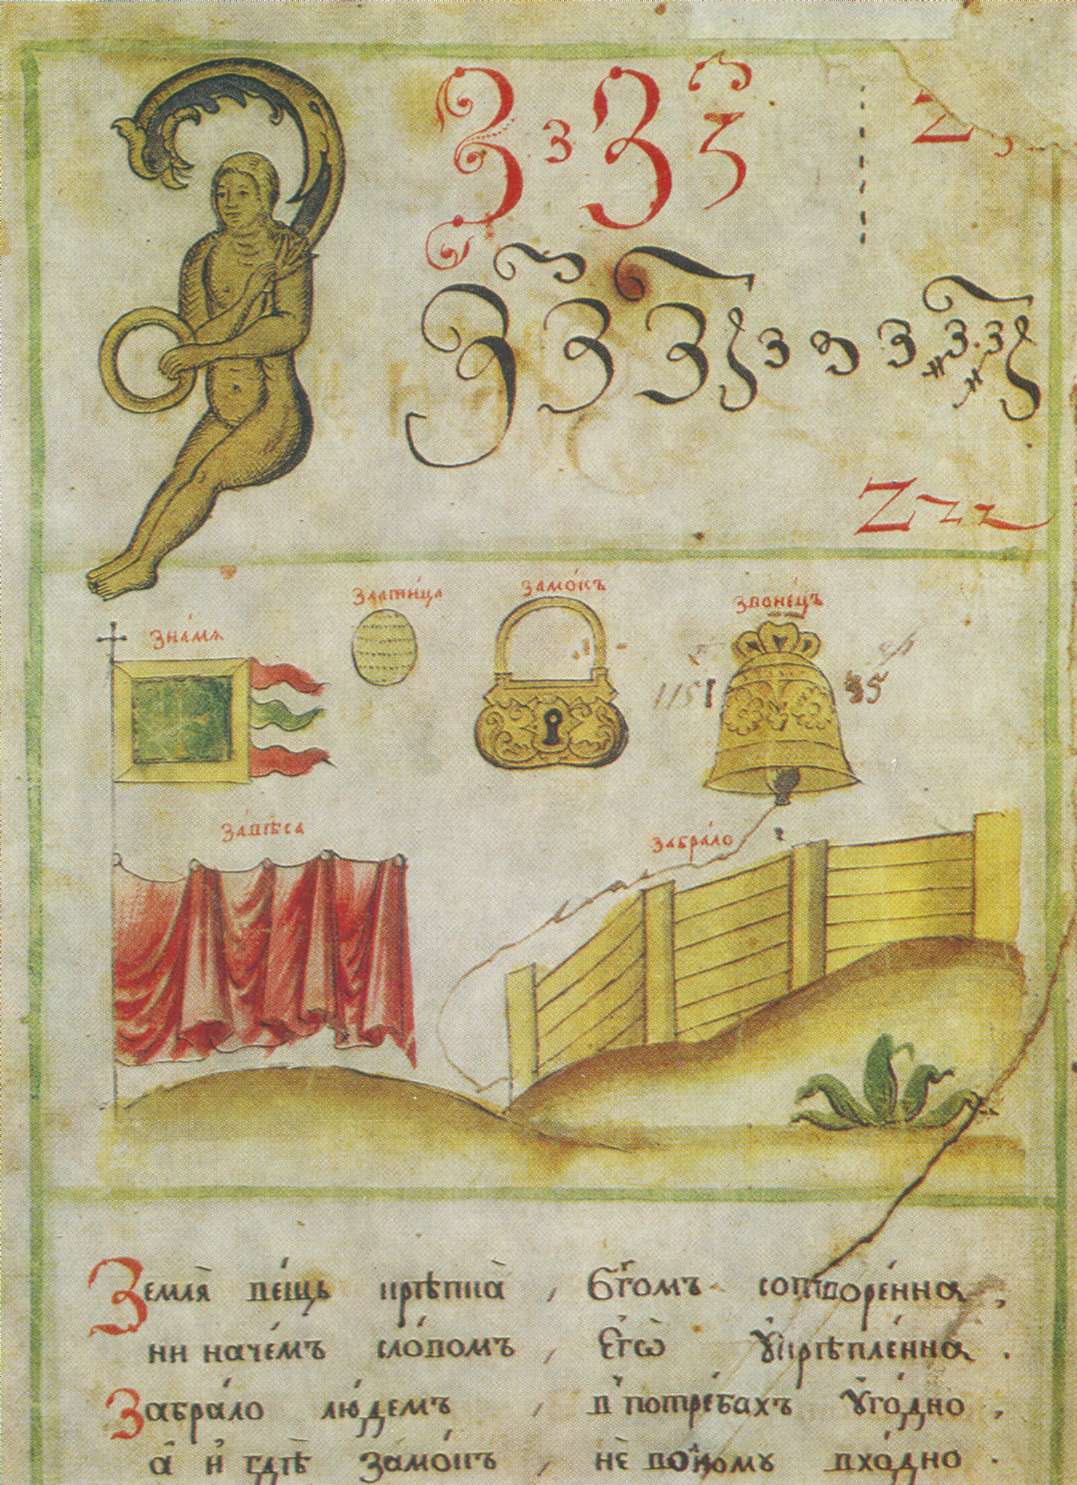 З з З З Z
З З З З з з з з з
Z z z
знамѧ
златница
замо́къ
звоне́цъ
завѣса
забра́ло
Землѧ̀ ве́щь крѣпка̀, Бг҃омъ сотворе́нна,
ни наче́мъ сло́вомъ, є҆гѡ̀ ᲂу҆крѣпле́нна.
Забра́ло лю́демъ, в потре́бахъ ᲂу҆го́дно,
а҆ и҆ гдѣ̀ замо́къ, не вхо́дно.